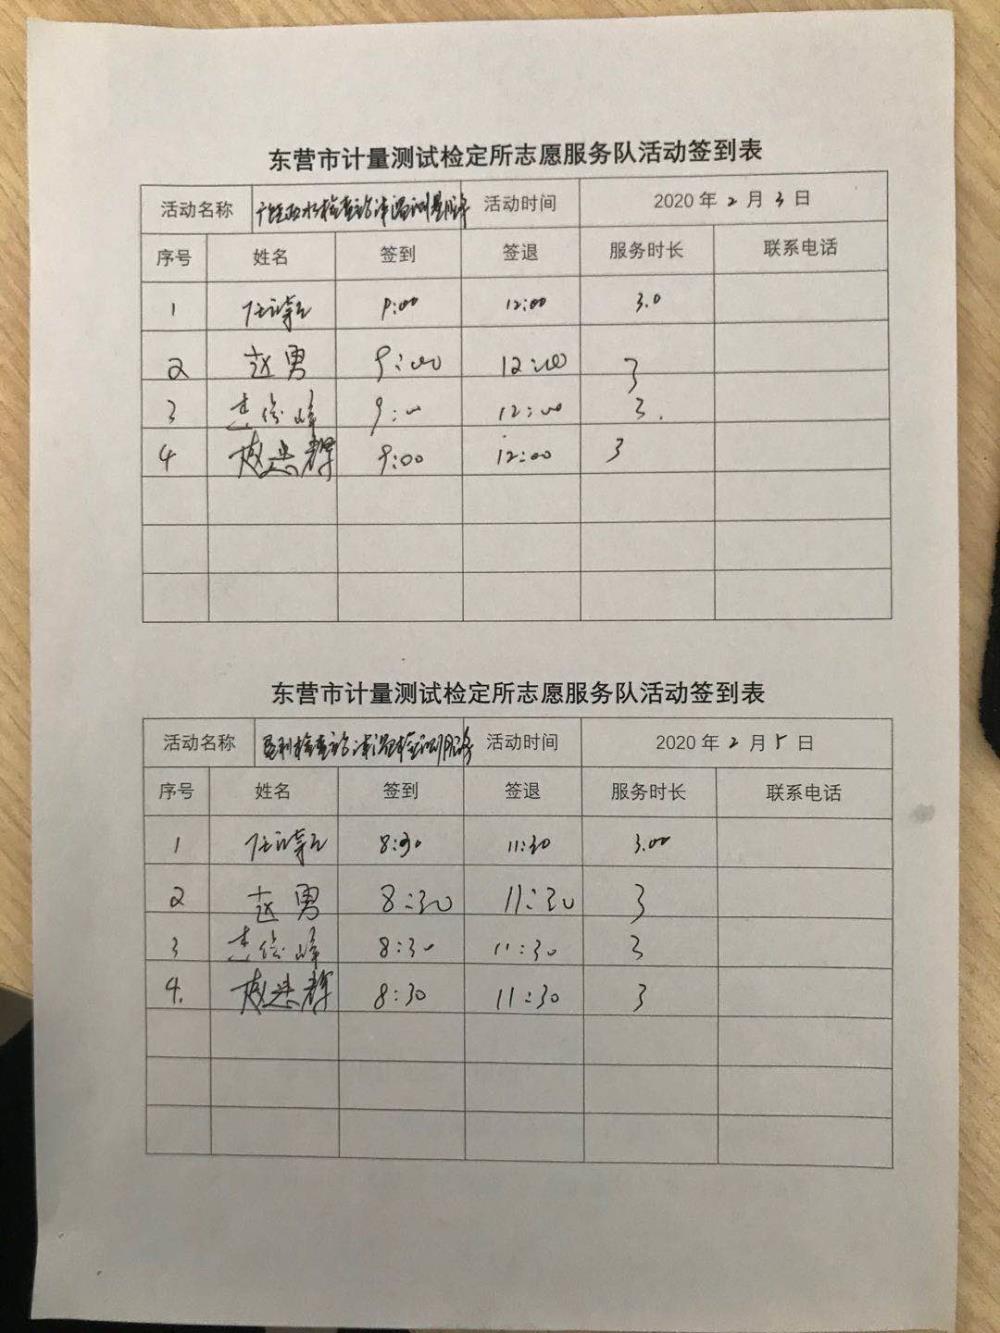 东营市计量测试检定所志愿服务队活动签到表
活动名称 检查站 活动时间 2020年2月3日
序号 姓名 签到 签退 服务时长 联系电话
1 9:00 12:00 3.0
2 赵勇 9:00 12:00 3
3 9:00 12:00 3.
4 9:00 12:00 3
东营市计量测试检定所志愿服务队活动签到表
活动名称 垦利检查站 活动时间 2020年2月5日
序号 姓名 签到 签退 服务时长 联系电话
1 8:30 11:30 3.00
2 赵勇 8:30 11:30 3
3 8:30 11:30 3
4. 8:30 11:30 3